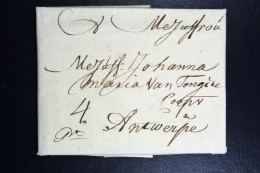 Mejuffroú
Mejuff: Johanna
maria Van Tongite
Coopv
4
a
Antwerpe